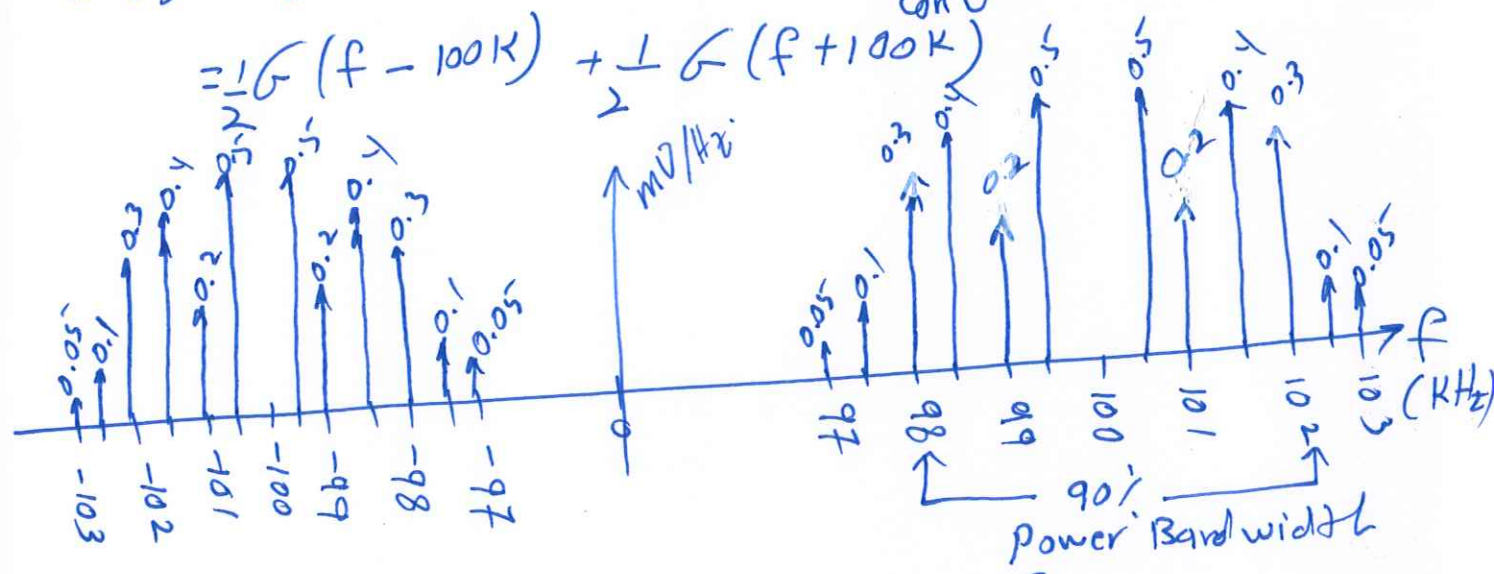 = 1/2 G (f - 100K) + 1/2 G (f + 100K)
mV/Hz
0.05 0.1 0.3 0.4 0.2 0.5 0.5 0.2 0.4 0.3 0.1 0.05
0.05 0.1 0.3 0.4 0.2 0.5 0.5 0.2 0.4 0.3 0.1 0.05
f
(KHz)
-103 -102 -101 -100 -99 -98 -97 0 97 98 99 100 101 102 103
90%
Power Bandwidth